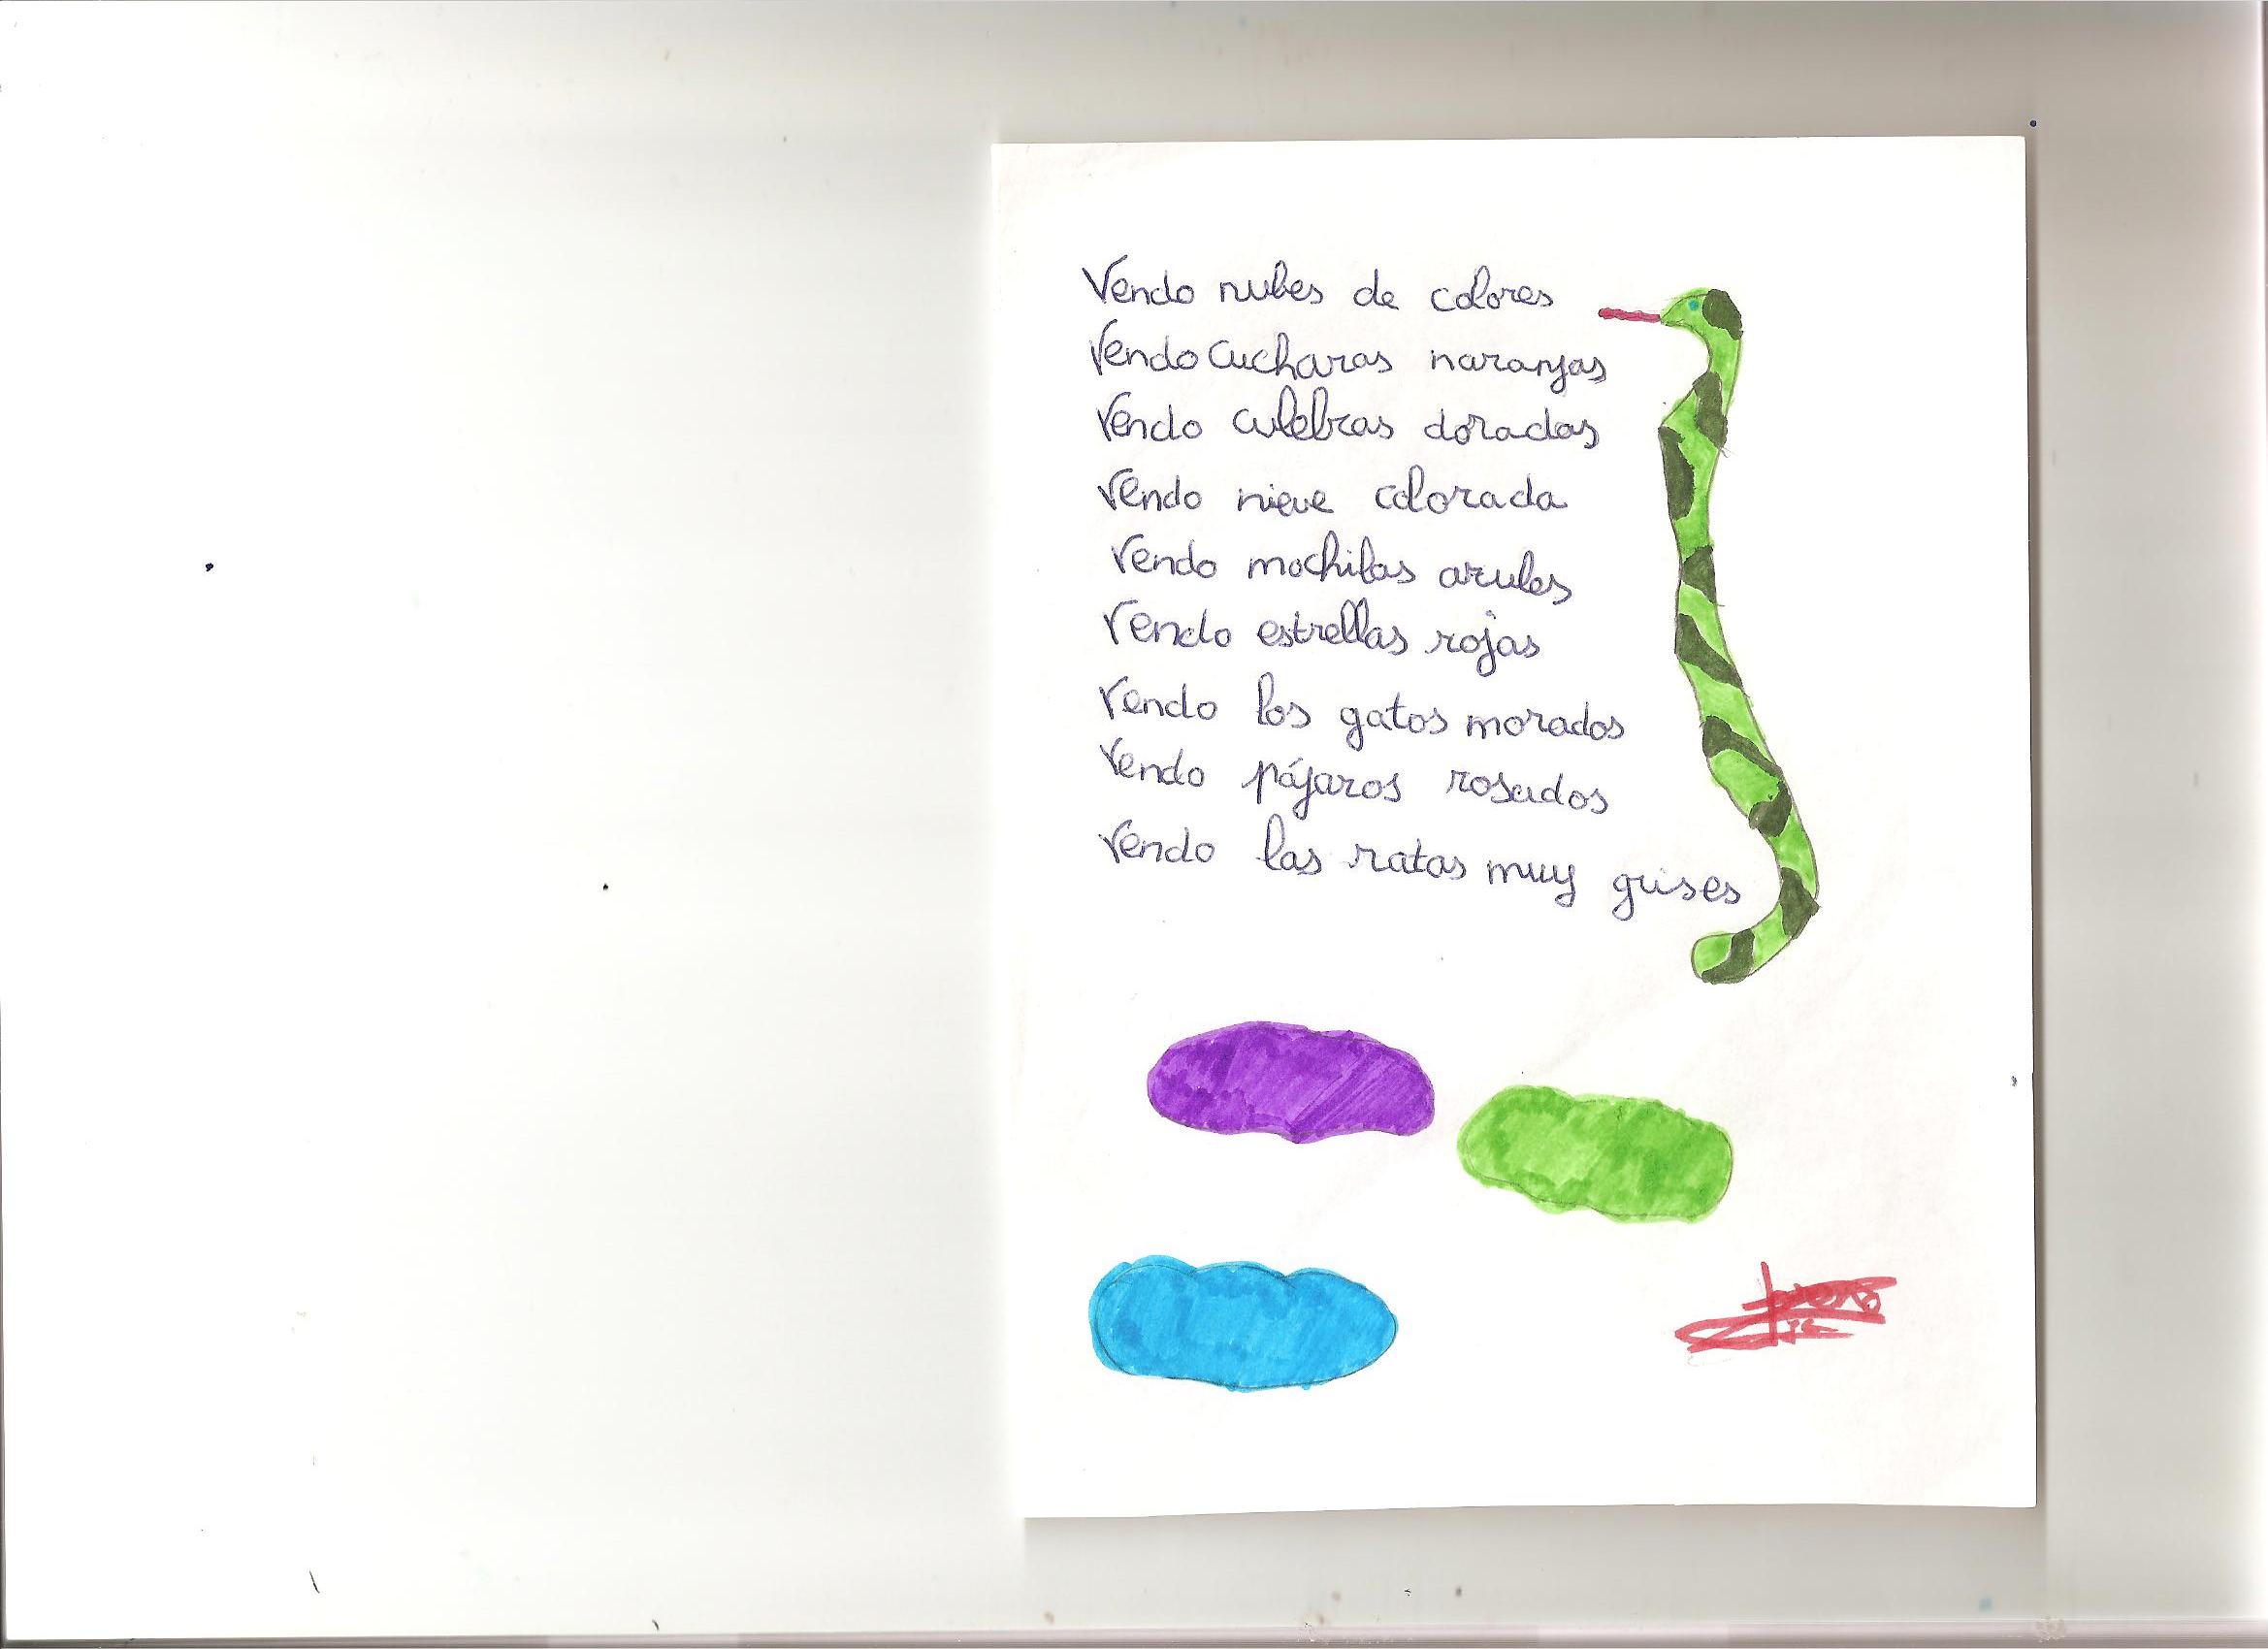 Vendo nubes de colores
Vendo cucharas naranjas
Vendo culebras doradas
Vendo nieve colorada
Vendo mochilas azules
Vendo estrellas rojas
Vendo los gatos morados
Vendo pájaros rosados
Vendo las ratas muy grises